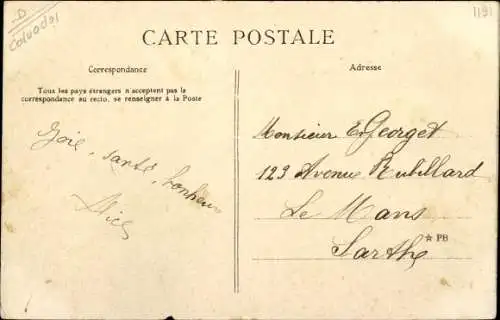 D
Calvados
1191
CARTE POSTALE
Correspondance
Tous les pays étrangers n'acceptent pas la
correspondance au recto, se renseigner à la Poste
Joie, santé, bonheur
Alice
Adresse
Monsieur E. Georget
123 Avenue Rubillard
Le Mans
Sarthe
PB